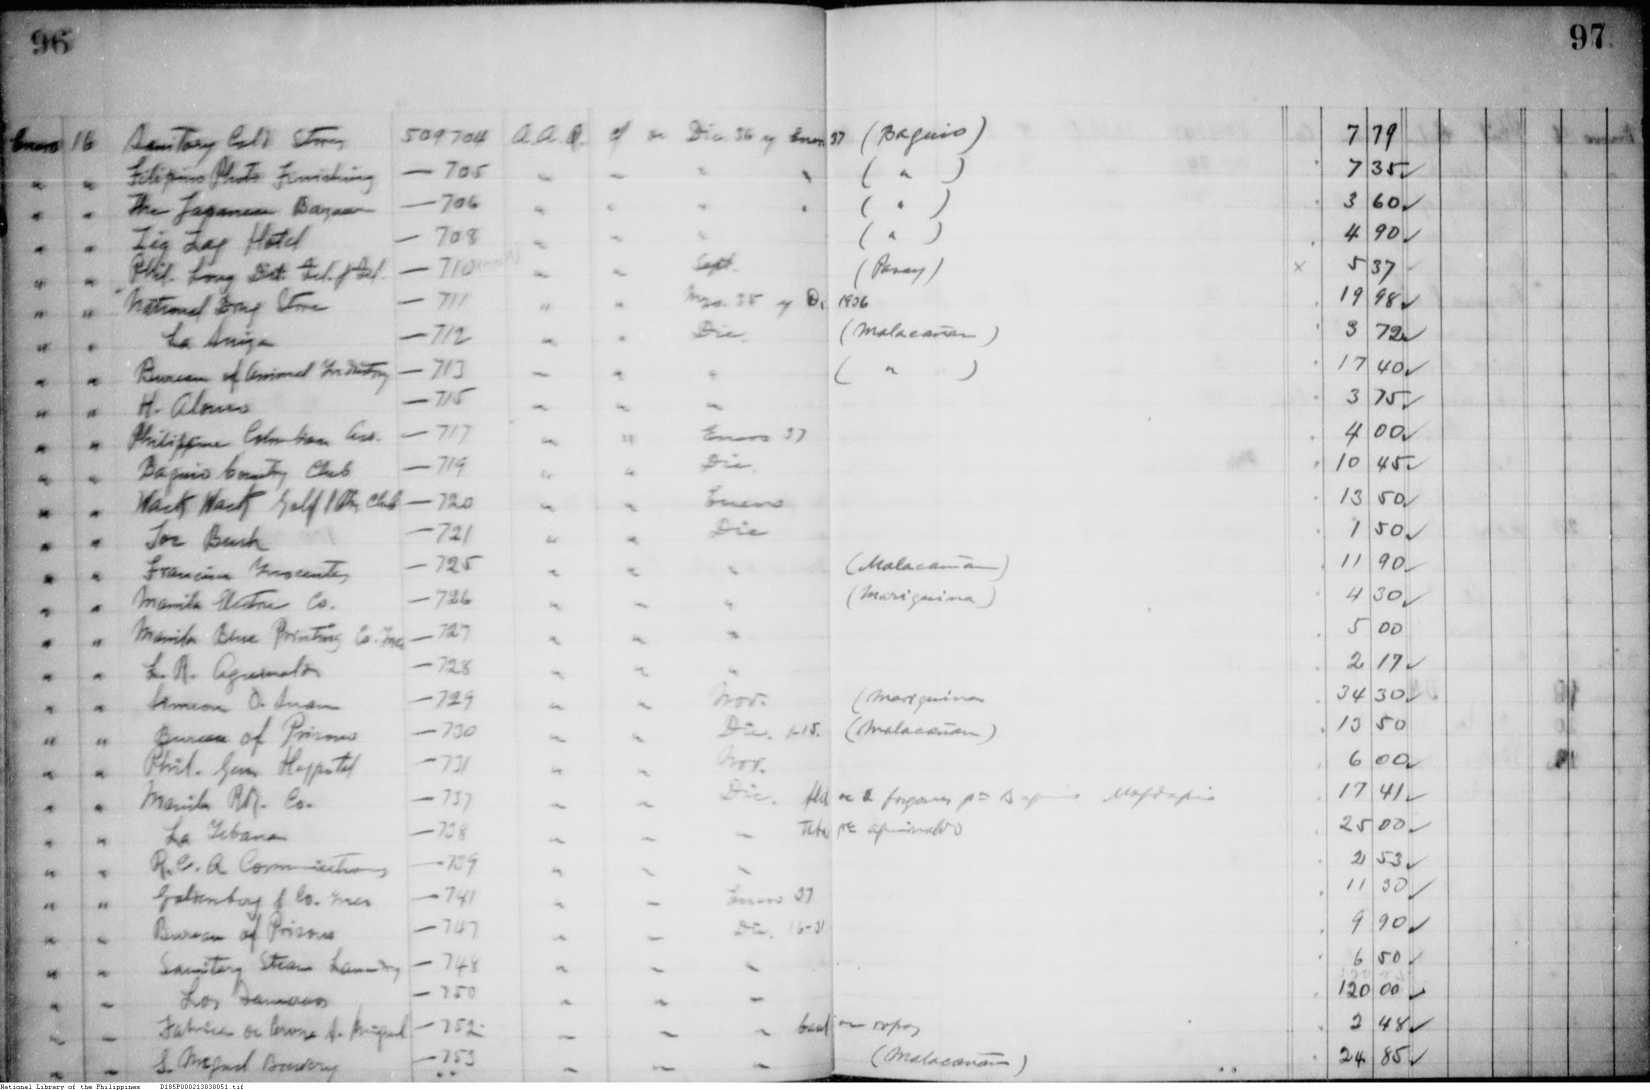 96 97
Enero 16 Sanitary Cold Stores 509704 A.A.Q. cf de Dic. 36 y Enero 37 (Baguio) 7 79
" " Filipino Photo Finishing — 705 " " " " ( " ) 7 35 ✓
" " The Japanese Bazaar — 706 " " " " ( " ) 3 60 ✓
" " Zig Zag Hotel — 708 " " " ( " ) 4 90 ✓
" " Phil. Long Dist. Tel. & Tel. — 710 " " Sept. (Pasay) x 5 37
" " National Drug Store — 711 " " 35 y 1936 19 98 ✓
" " La Suiza — 712 " " Dic. (Malacañan) 3 72 ✓
" " Bureau of Animal Industry — 713 " " " ( " ) 17 40 ✓
" " H. Alonso — 715 " " " 3 75 ✓
" " Philippine Columbian Asso. — 717 " " Enero 37 4 00 ✓
" " Baguio Country Club — 719 " " Dic. 10 45 ✓
" " Wack Wack Golf & Club — 720 " " Enero 13 50 ✓
" " Joe Bush — 721 " " Dic 1 50 ✓
" " — 725 " " " (Malacañan) 11 90 ✓
" " Manila Co. — 726 " " " (Mariquina) 4 30 ✓
" " Manila Blue Printing Co. Inc. — 727 " " " 5 00
" " L. R. Aguinaldo — 728 " " " 2 17 ✓
" " Simeon — 729 " " Nov. (Mariquina 34 30 ✓
" " Bureau of Prisons — 730 " " Dic. 1-15. (Malacañan) 13 50
" " Phil. Gen. Hospital — 731 " " Nov. 6 00 ✓
" " Manila RR. Co. — 737 " " Dic. 17 41 ✓
" " La — 738 " " " Aguinaldo 25 00 ✓
" " R.C.A. Communications — 739 " " " 2 53 ✓
" " Goldenberg & Co. Inc. — 741 " " Enero 37 11 30 ✓
" " Bureau of Prisons — 747 " " Dic. 16-31 9 90 ✓
" " Sanitary Steam Laundry — 748 " " " 6 50 ✓
" " Los — 750 " " " 120 00 ✓
" " Fabrica de Cerveza S. Miguel — 752 " " " 2 48 ✓
" " S. Miguel Brewery — 753 " " " (Malacañan) 24 85 ✓
National Library of the Philippines D185P000213838051.tif